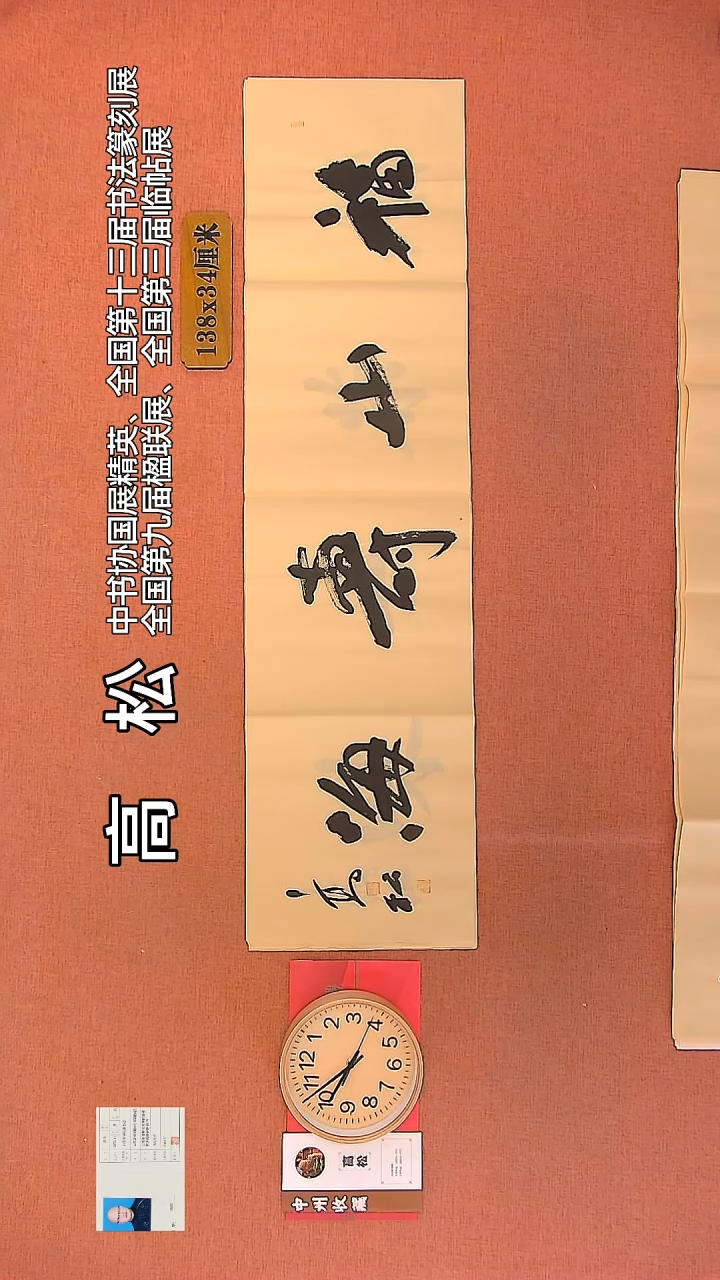 高 松
中书协国展精英、全国第十三届书法篆刻展
全国第九届楹联展、全国第三届临帖展
138x34厘米
福山寿海
高松
12
1
2
3
4
5
6
7
8
9
10
11
高松
中州收藏